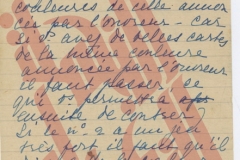 couleures de celle annon
cée par l'ouvreur – car
si on avez de belles cartes
de la même couleur
annoncée par l'ouvreur
il faut passer ce
qui permettra
ensuite de contrer
Si le n° 2 a un jeu
très fort il faut qu'il